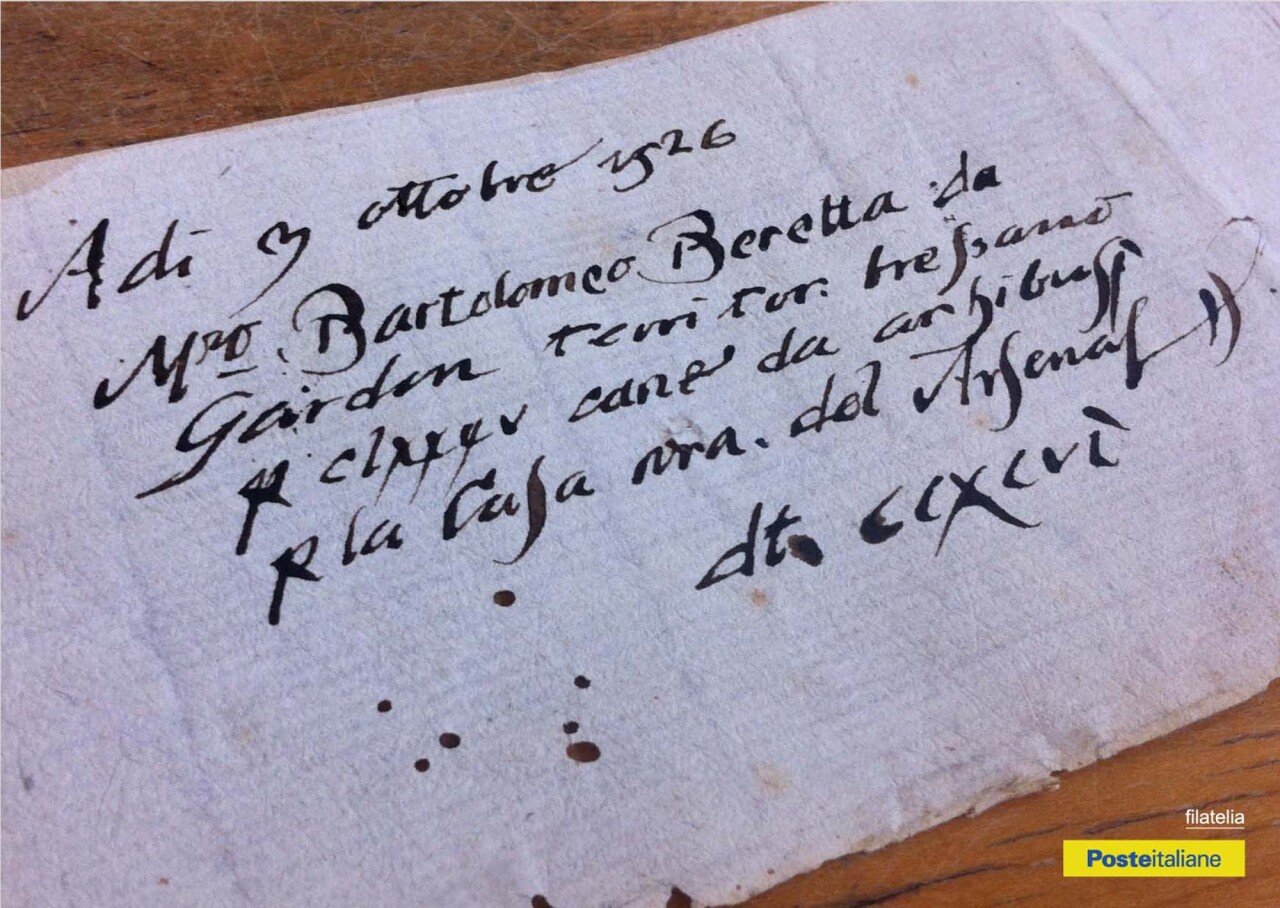 Adi 3 ottobre 1526
Mro. Bartolomeo Beretta da
Gardon territor. bressano
p clxxxv cane da archibussi
p la Casa nra. del Arsenal
dt. ccxcvi
filatelia
Posteitaliane